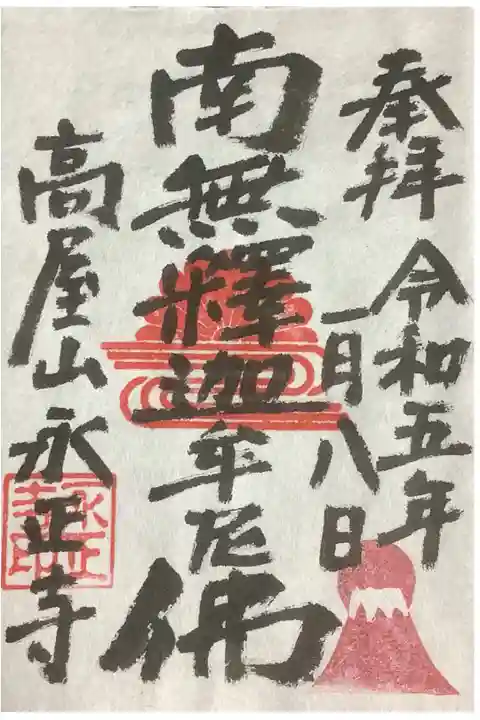 奉拝
令和五年
一月八日
南無釋迦牟尼佛
高屋山永正寺
永正寺印